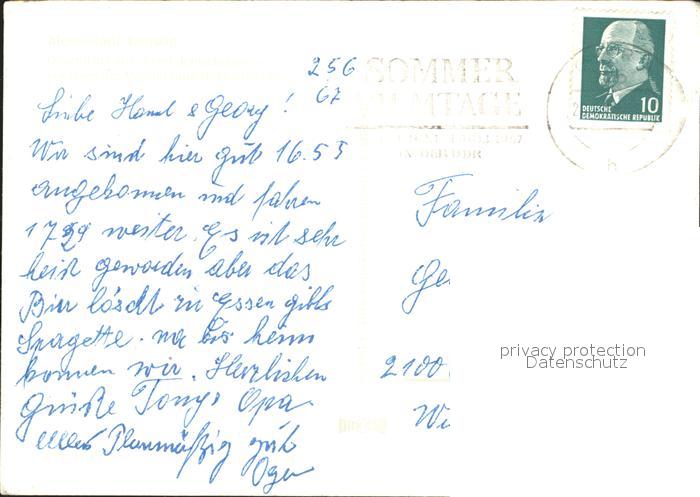 256
67
SOMMER
FILMTAGE
IN DER DDR
DEUTSCHE
DEMOKRATISCHE REPUBLIK 10
Liebe & Georg!
Wir sind hier gut 16.53
angekommen und fahren
1729 weiter. Es ist sehr
heiß geworden aber das
Bier löscht zu Essen gibts
Spagette. na bis heim
kommen wir. Herzlichen
Grüße Opa
alles Planmäßig gut
Familie
Ge
2100
Wi
privacy protection
Datenschutz